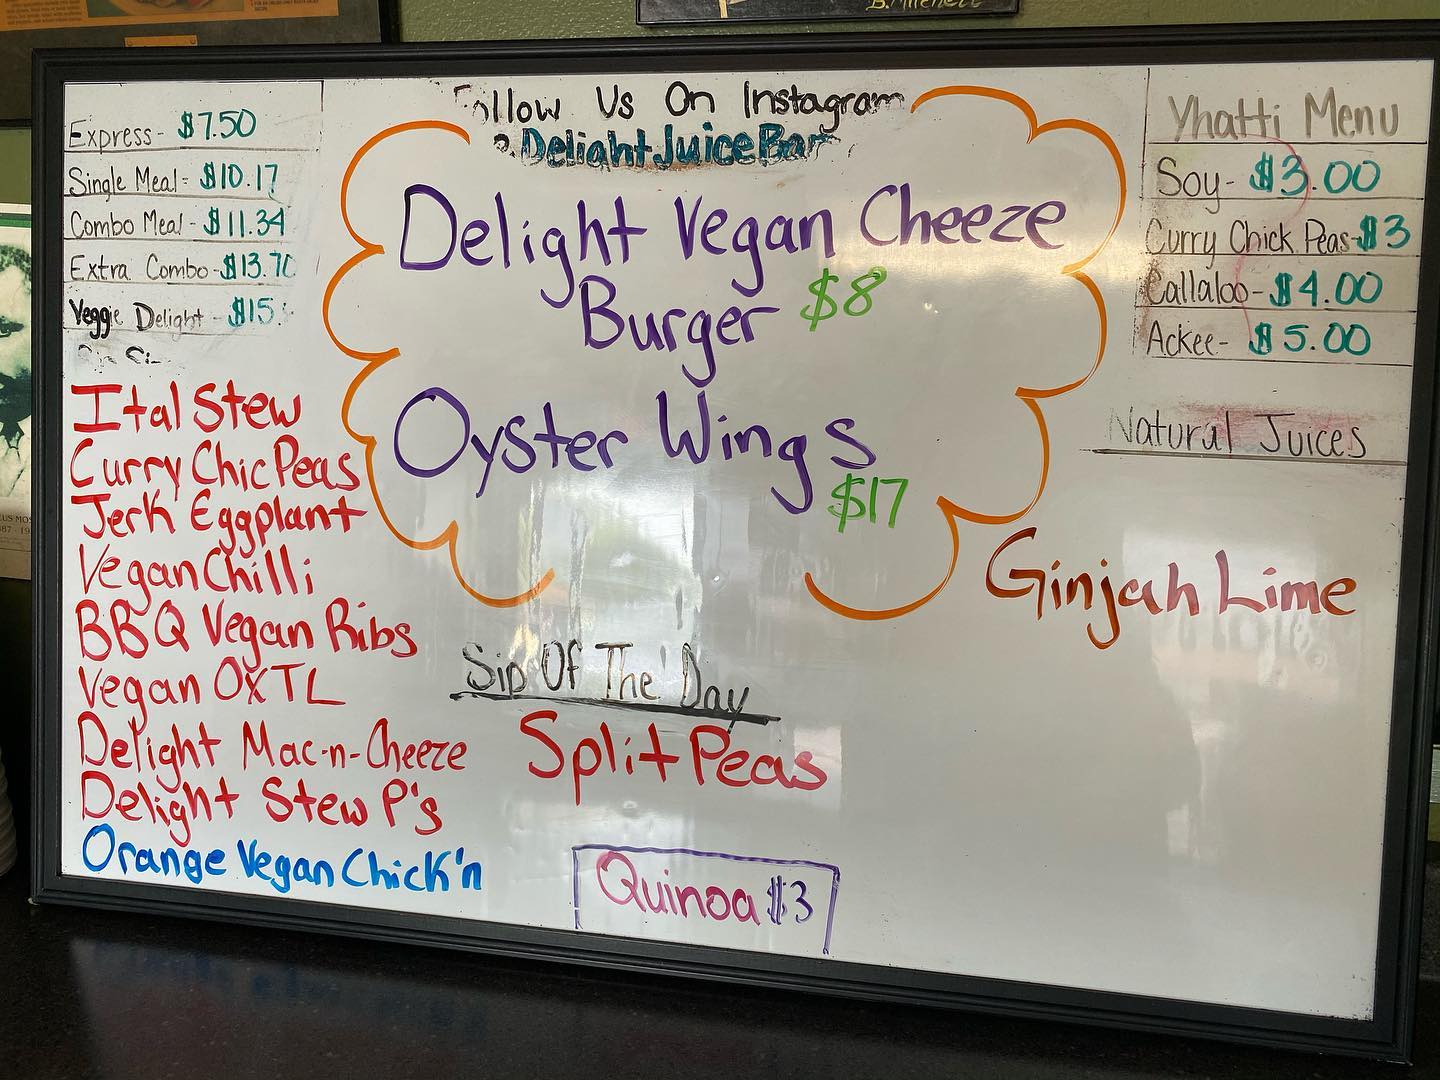 B. Mitchell
Follow Us On Instagram
DelightJuiceBar
Express - $7.50
Single Meal - $10.17
Combo Meal - $11.34
Extra Combo - $13.70
Veggie Delight - $15
Ital Stew
Curry Chic Peas
Jerk Eggplant
Vegan Chilli
BBQ Vegan Ribs
Vegan OxTL
Delight Mac-n-Cheeze
Delight Stew P's
Orange Vegan Chick'n
Delight Vegan Cheeze
Burger $8
Oyster Wings
$17
Sip Of The Day
Split Peas
Quinoa $3
Yhatti Menu
Soy - $3.00
Curry Chick Peas - $3
Callaloo - $4.00
Ackee - $5.00
Natural Juices
Ginjah Lime